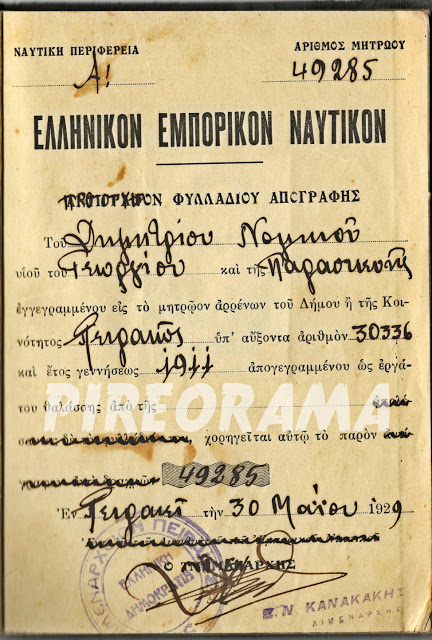 ΝΑΥΤΙΚΗ ΠΕΡΙΦΕΡΕΙΑ
Α!
ΑΡΙΘΜΟΣ ΜΗΤΡΩΟΥ
49285
ΕΛΛΗΝΙΚΟΝ ΕΜΠΟΡΙΚΟΝ ΝΑΥΤΙΚΟΝ
ΦΥΛΛΑΔΙΟΥ ΑΠΟΓΡΑΦΗΣ
Τοῦ Δημητρίου Νομικοῦ
υἱοῦ τοῦ Γεωργίου καὶ τῆς Παρασκευῆς
ἐγγεγραμμένου εἰς τὸ μητρῷον ἀρρένων τοῦ Δήμου ἢ τῆς Κοι-
νότητος Πειραιῶς ὑπ' αὔξοντα ἀριθμὸν 30336
καὶ ἔτος γεννήσεως 1911 ἀπογεγραμμένου ὡς ἐργά-
του θαλάσσης ἀπὸ τῆς
χορηγεῖται αὐτῷ τὸ παρὸν
49285
Ἐν Πειραιεῖ τῇν 30 Μαΐου 1929
Ὁ ΛΙΜΕΝΑΡΧΗΣ
ΕΛΛΗΝΙΚΗ ΔΗΜΟΚΡΑΤΙΑ
Ε. Ν. ΚΑΝΑΚΑΚΗΣ
ΛΙΜΕΝΑΡΧΗΣ
PIREORAMA